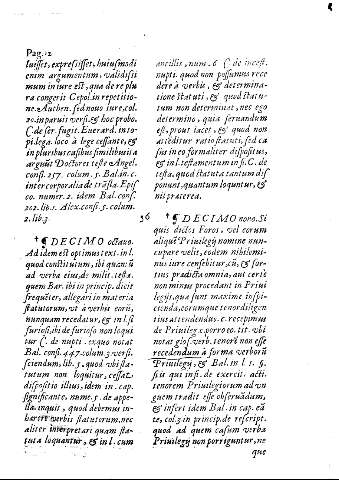 Pag. 12
luisset, expressisset, huiusmodi
enim argumentum, validissi
mum in iure est, qua de re plu
ra congerit Cepol. in repetitio-
ne. Authen. sed nouo iure, col.
20. in paruis versi. & hoc probo.
C. de ser. fugit. Euerard. in to-
pi. lega. loco à lege cessante, &
in pluribus casibus similibus ita
arguūt Doctores teste Angel.
consi. 257. colum. 5. Bal. in c.
inter corporalia de trāsla. Epis
co. numer. 2. idem Bal. consi.
202. lib. 1. Alex. consi. 5. colum.
2. lib. 3
† ¶ DECIMO octauo.
Ad idem est optimus text. in l.
quod constitutum, ibi quan ū
ad verba eius, de milit. testa.
quem Bar. ibi in princip. dicit
frequēter, allegari in materia
statutorum, vt à verbis eorū,
nunquam recedatur, & in l. si
furiosi, ibi de furioso non loqui
tur C. de nupti. ex quo notat
Bal. consi. 447. colum 3. versi.
sciendum, lib. 5. quod vbi sta-
tutum non loquitur, cessat
dispositio illius, idem in cap.
significante, nume. 5. de appe-
lla. inquit, quod debemus in-
hærere verbis statutorum, nec
aliter interpretari quam sta-
tuta loquantur, & in l. cum
ancillis, num. 6 C. de incest.
nupti. quod non possumus rece
dere à verbis, & determina-
tione statuti, & quod statu-
tum non determinat, nec ego
determino, quia seruandum
est, prout iacet, & quod non
attēditur ratio statuti, sed ca
sus in eo formaliter dispositus,
& in l. testamentum in fi. C. de
testa. quod statuta tantum dis
ponunt, quantum loquūtur, &
ni pracerea.
36 † ¶ DECIMO nono. Si
quis dictos Foros, vel eorum
aliquē Priuilegij nomine nun-
cupare velit, eodem nihilomi-
nus iure censebitur, cū, & for-
tius pradicta omnia, aut certè
non minus procedant in Priui
legijs, quæ sunt maxime inspi-
cienda, eorumque tenor diligen
tius attendendus. c. recepimus
de Priuileg. c. porro eo. tit. vbi
notat glos. verb. tenorē non esse
recedendum à forma verborū
Priuilegij, & Bal. in l. 1. §.
sed qui inst. de exerci. acti.
tenorem Priuilegiorum ad vn
guem tradit esse obseruādum,
& infert idem Bal. in cap. eā
te, col. 3 in princip. de rescript.
quod ad quem casum verba
Priuilegij non porriguntur, ne
que